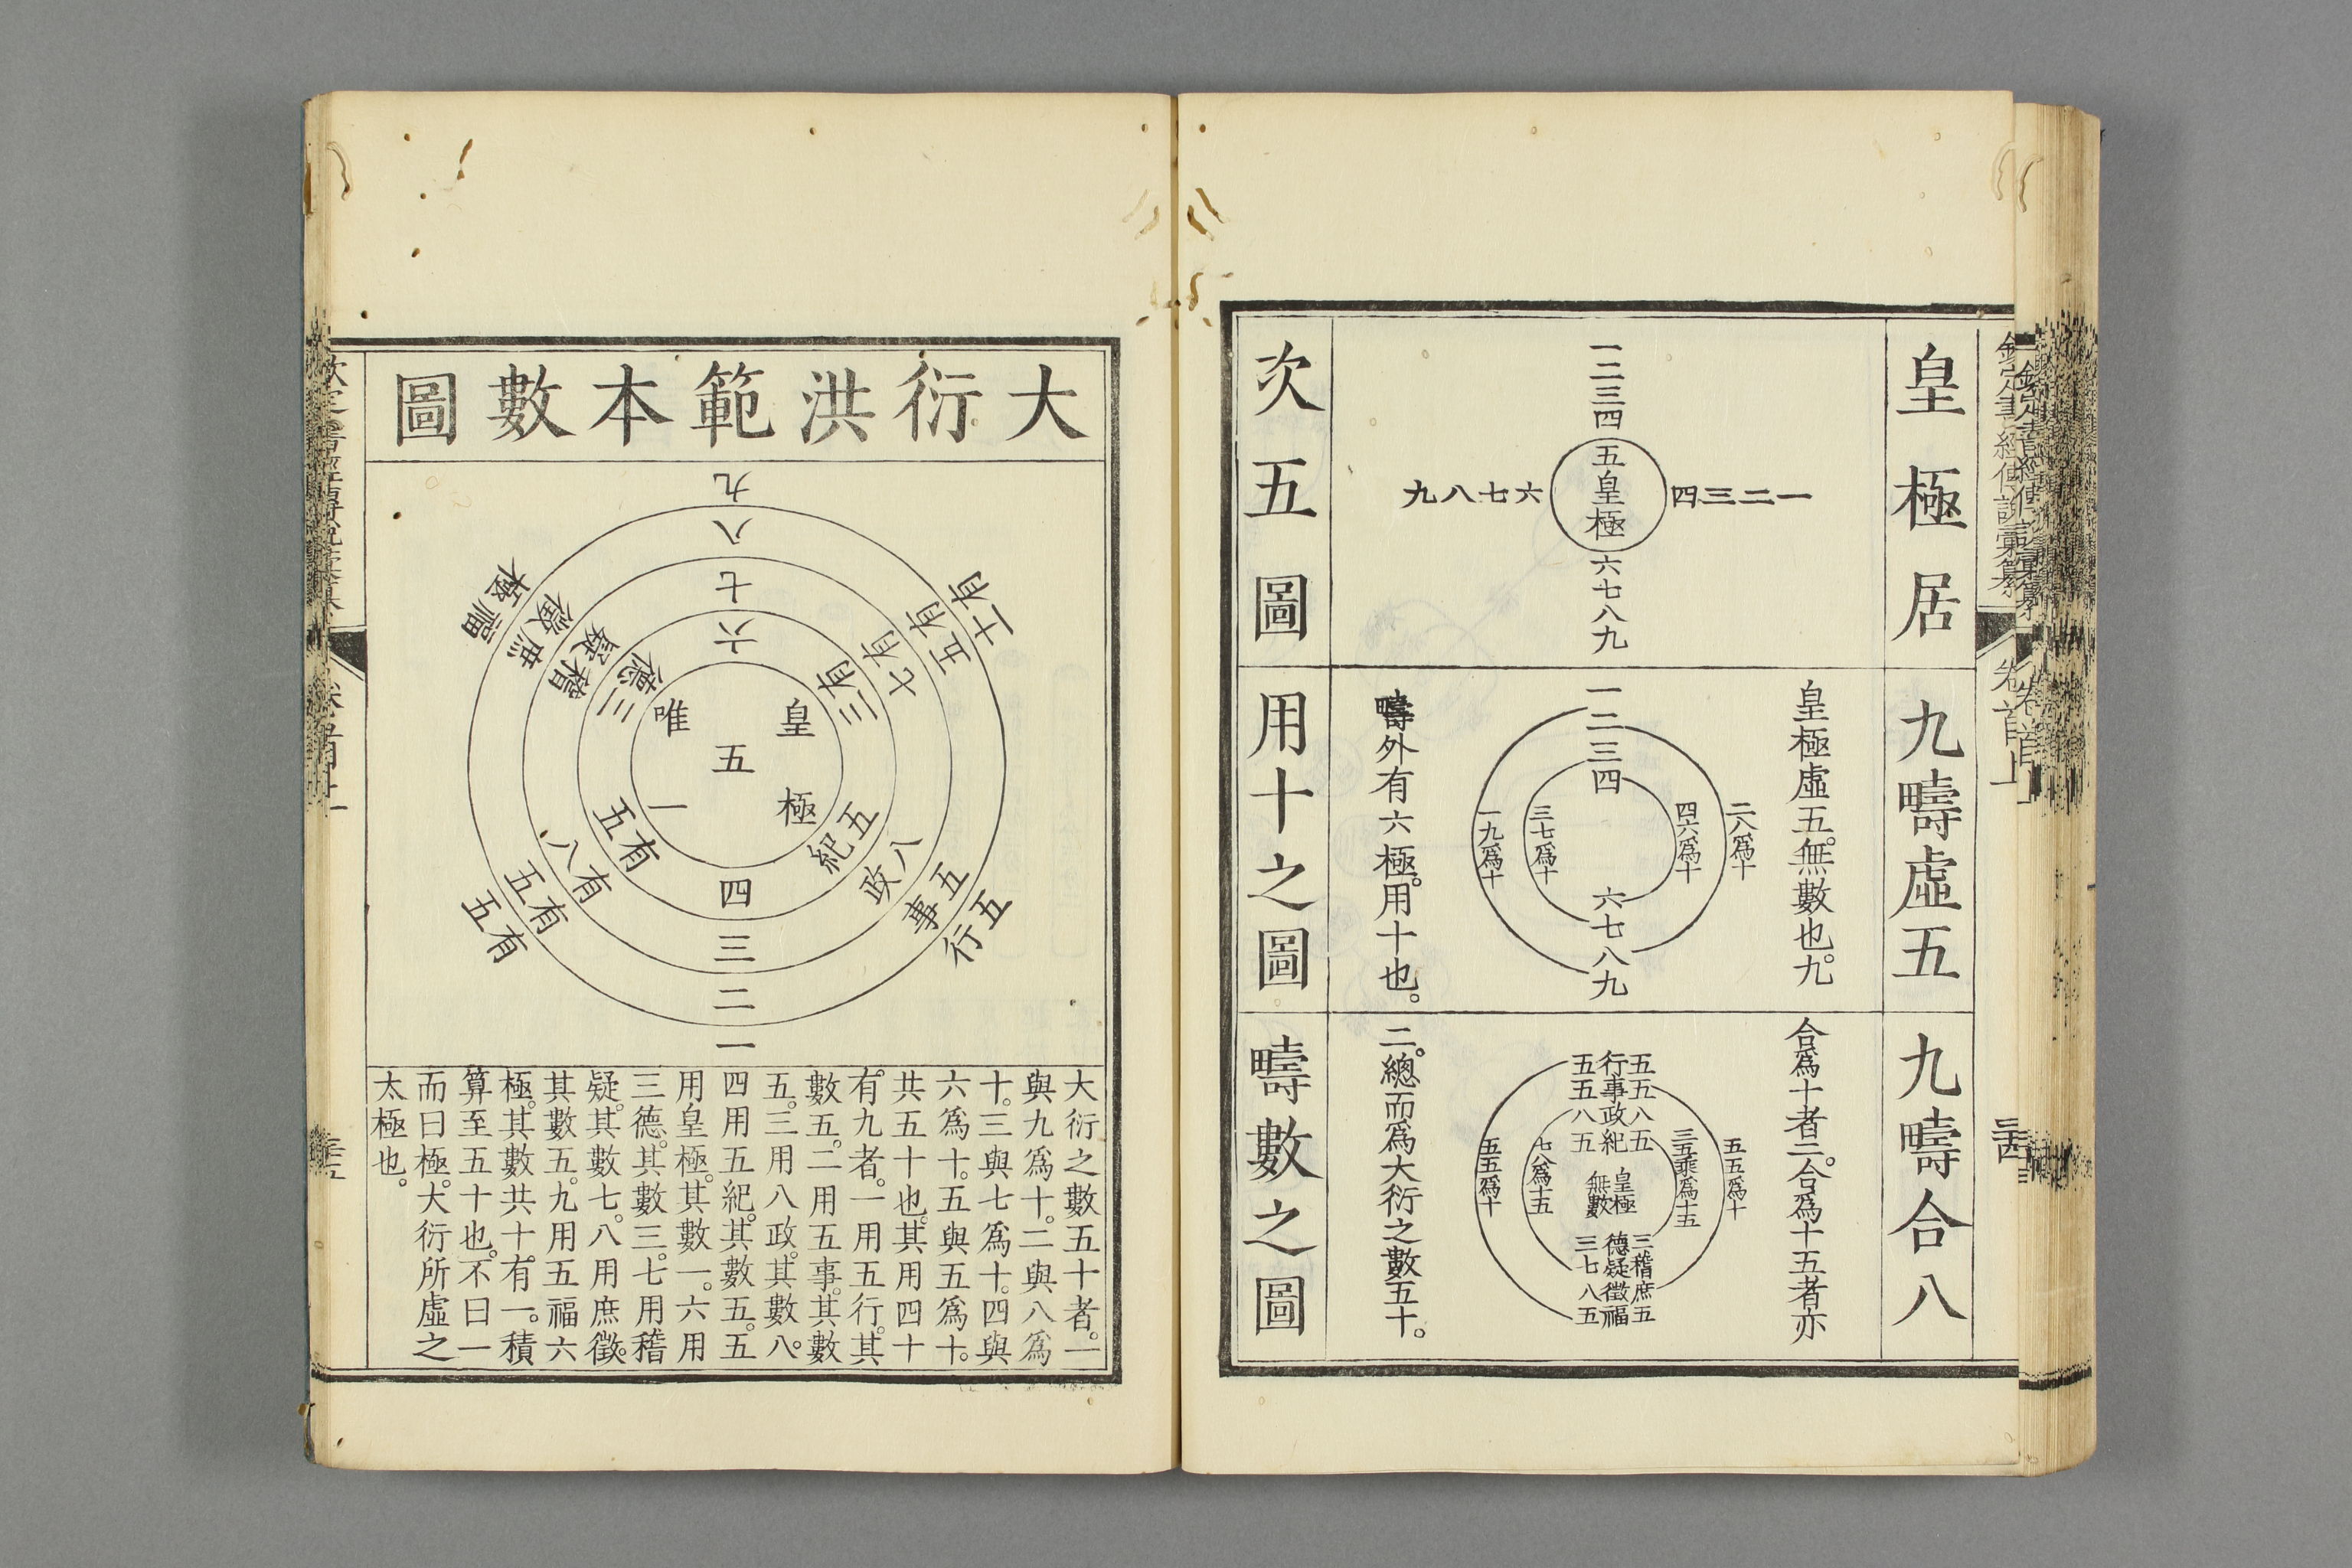 欽定書經傳說彙纂
卷首上
皇極居
次五圖
一二三四
五皇極
六七八九
一二三四
六七八九
九疇虛五
用十之圖
皇極虛五。無數也。九
疇外有六極。用十也。
一二三四
六七八九
二八爲十
四六爲十
三七爲十
一九爲十
九疇合八
疇數之圖
合爲十者二。合爲十五者亦
二。總而爲大衍之數五十。
五五八五
行事政紀
五五八五
皇極
無數
三稽庶五
德疑徵福
三七八五
五五爲十
三五乘爲十五
七八爲十五
五五爲十
大衍洪範本數圖
九
八
七
六
皇極
五
唯一
四
三
二
一
五行
五事
八政
五紀
有五
有五
有八
有五
三德
稽疑
庶徵
福極
有三
有七
有五
有十一
大衍之數五十者。一
與九爲十。二與八爲
十。三與七爲十。四與
六爲十。五與五爲十。
共五十也。其用四十
有九者。一用五行。其
數五。二用五事。其數
五。三用八政。其數八。
四用五紀。其數五。五
用皇極。其數一。六用
三德。其數三。七用稽
疑。其數七。八用庶徵。
其數五。九用五福六
極。其數共十有一。積
算至五十也。不曰一
而曰極。大衍所虛之
太極也。